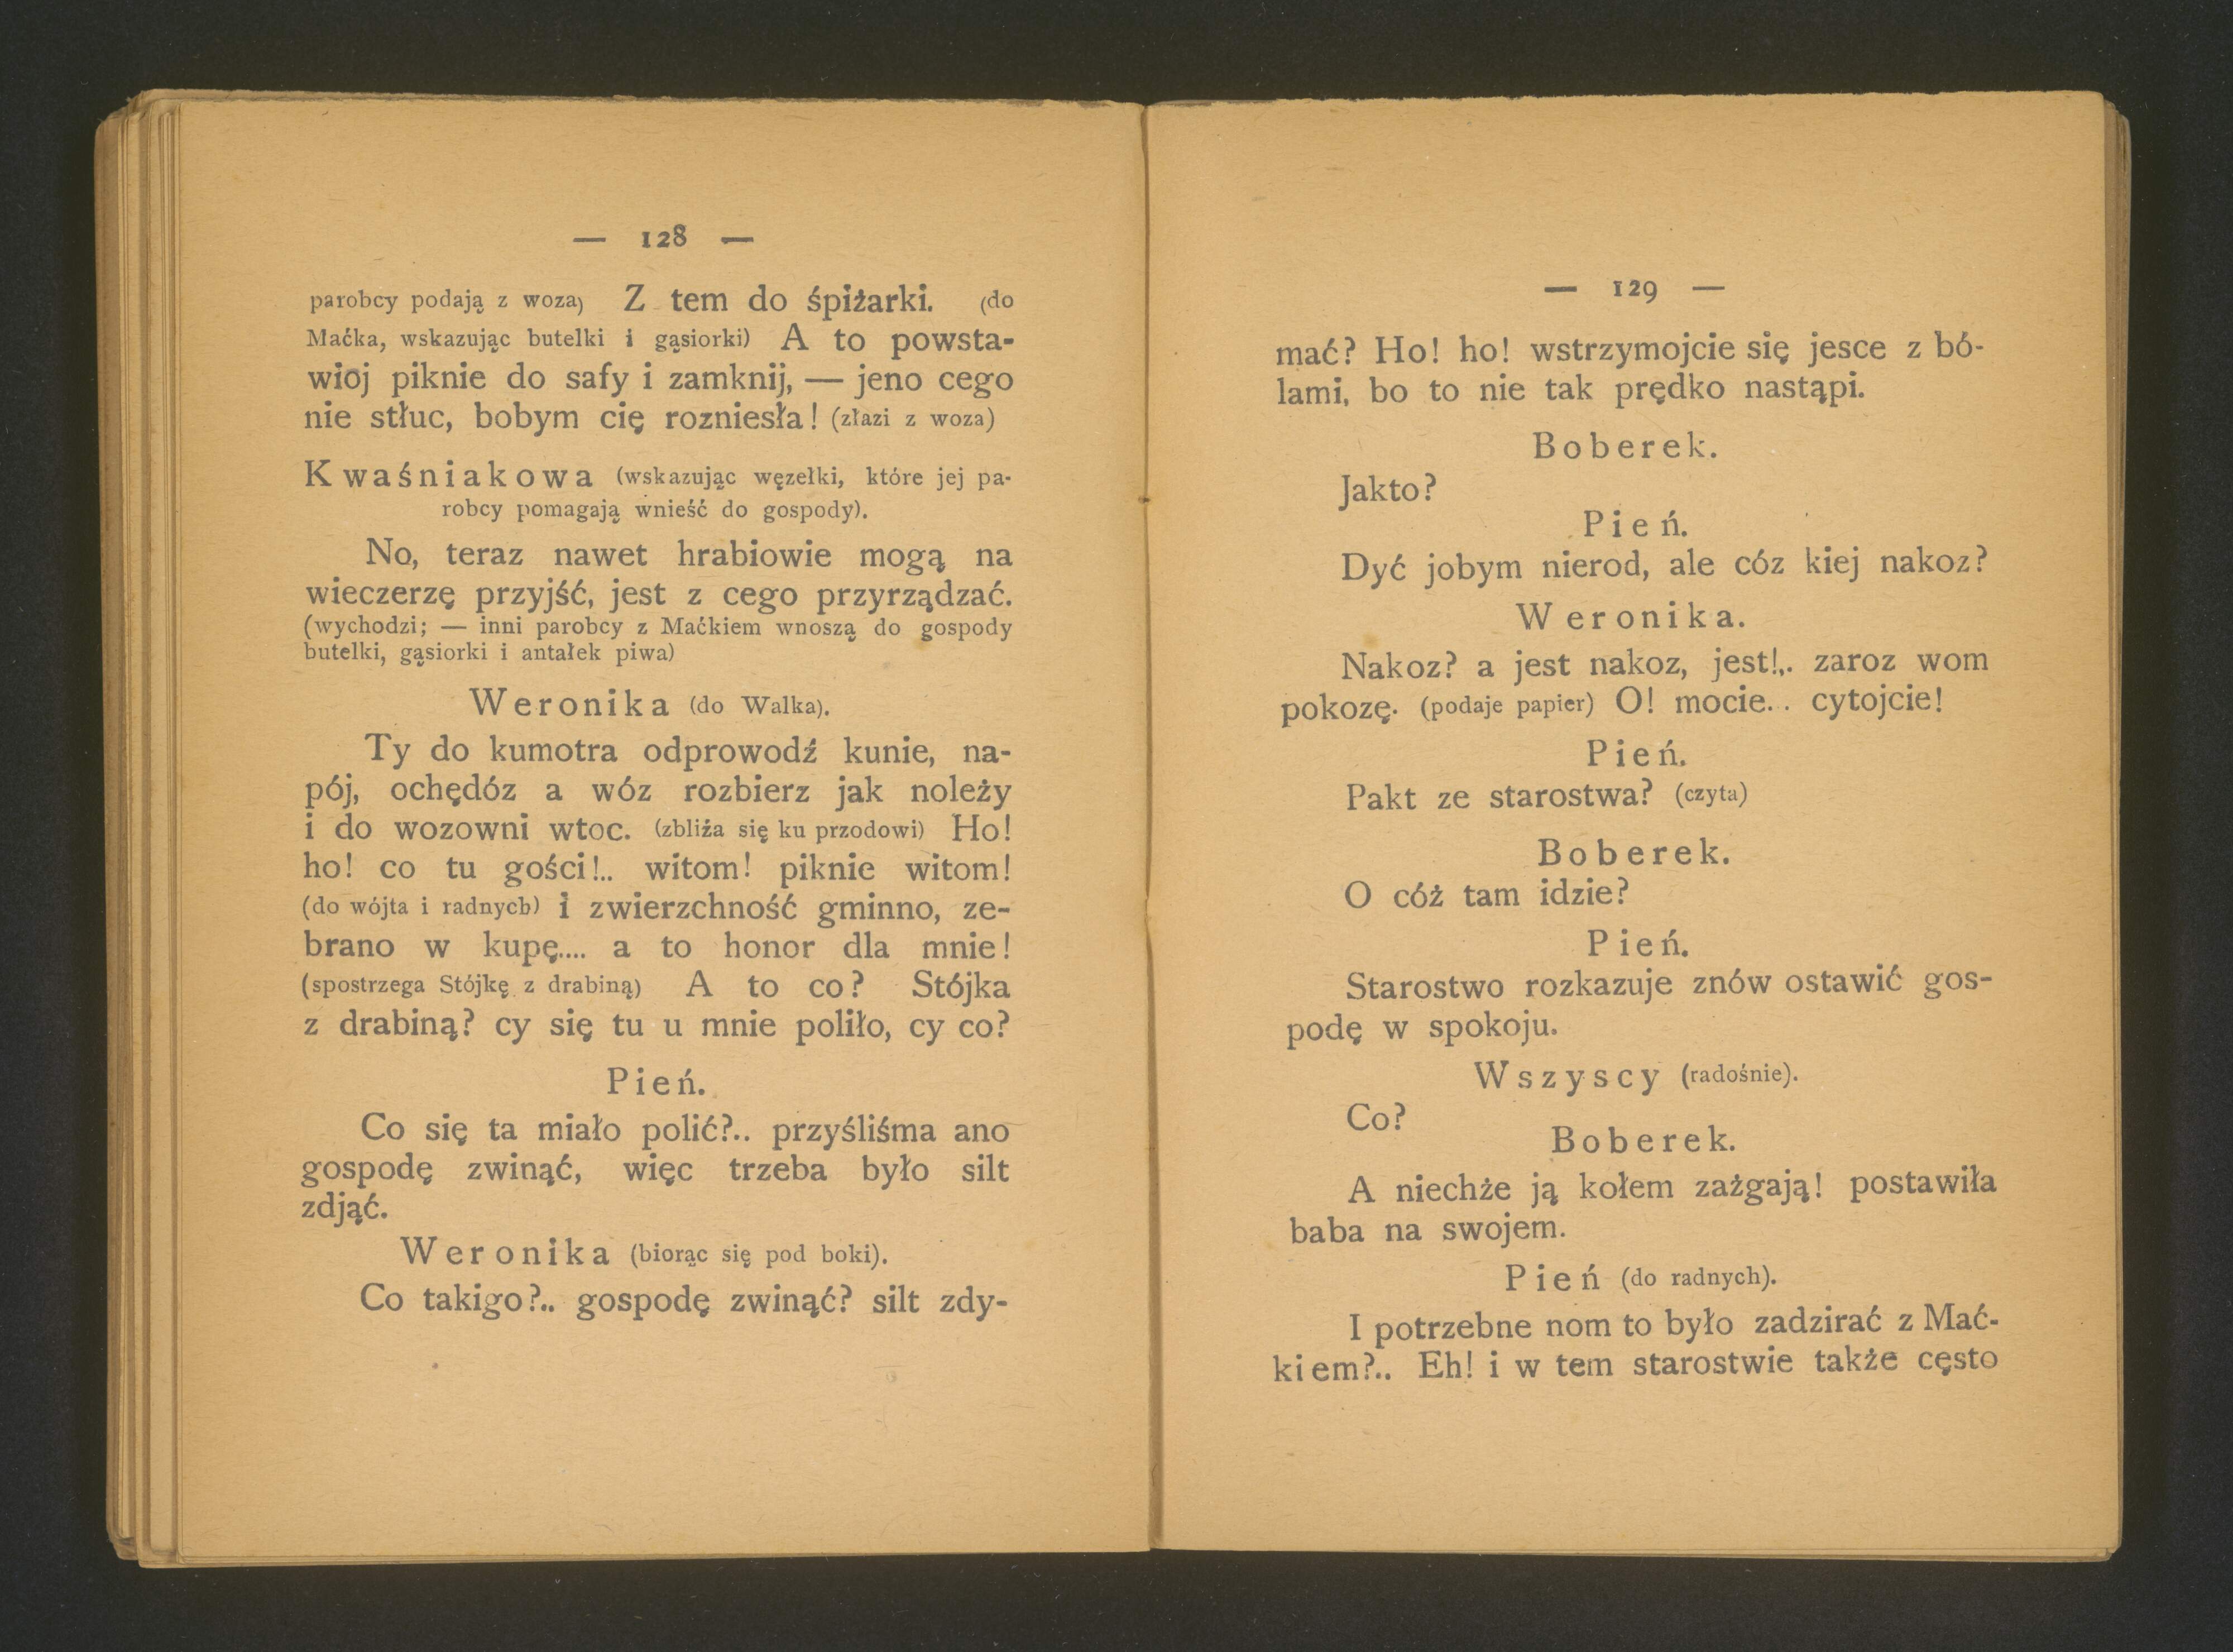 — 128 —
parobcy podają z woza) Z tem do śpiżarki. (do
Maćka, wskazując butelki i gąsiorki) A to powsta-
wioj piknie do safy i zamknij, — jeno cego
nie stłuc, bobym cię rozniesła! (złazi z woza)
Kwaśniakowa (wskazując węzełki, które jej pa-
robcy pomagają wnieść do gospody).
No, teraz nawet hrabiowie mogą na
wieczerzę przyjść, jest z cego przyrządzać.
(wychodzi; — inni parobcy z Maćkiem wnoszą do gospody
butelki, gąsiorki i antałek piwa)
Weronika (do Walka).
Ty do kumotra odprowodź kunie, na-
pój, ochędóz a wóz rozbierz jak noleży
i do wozowni wtoc. (zbliża się ku przodowi) Ho!
ho! co tu gości!.. witom! piknie witom!
(do wójta i radnych) i zwierzchność gminno, ze-
brano w kupę.... a to honor dla mnie!
(spostrzega Stójkę z drabiną) A to co? Stójka
z drabiną? cy się tu u mnie poliło, cy co?
Pień.
Co się ta miało polić?.. przyśliśma ano
gospodę zwinąć, więc trzeba było silt
zdjąć.
Weronika (biorąc się pod boki).
Co takigo?.. gospodę zwinąć? silt zdy-
— 129 —
mać? Ho! ho! wstrzymojcie się jesce z bó-
lami, bo to nie tak prędko nastąpi.
Boberek.
Jakto?
Pień.
Dyć jobym nierod, ale cóz kiej nakoz?
Weronika.
Nakoz? a jest nakoz, jest!.. zaroz wom
pokozę. (podaje papier) O! mocie.. cytojcie!
Pień.
Pakt ze starostwa? (czyta)
Boberek.
O cóż tam idzie?
Pień.
Starostwo rozkazuje znów ostawić gos-
podę w spokoju.
Wszyscy (radośnie).
Co?
Boberek.
A niechże ją kołem zażgają! postawiła
baba na swojem.
Pień (do radnych).
I potrzebne nom to było zadzirać z Mać-
kiem?.. Eh! i w tem starostwie także cęsto